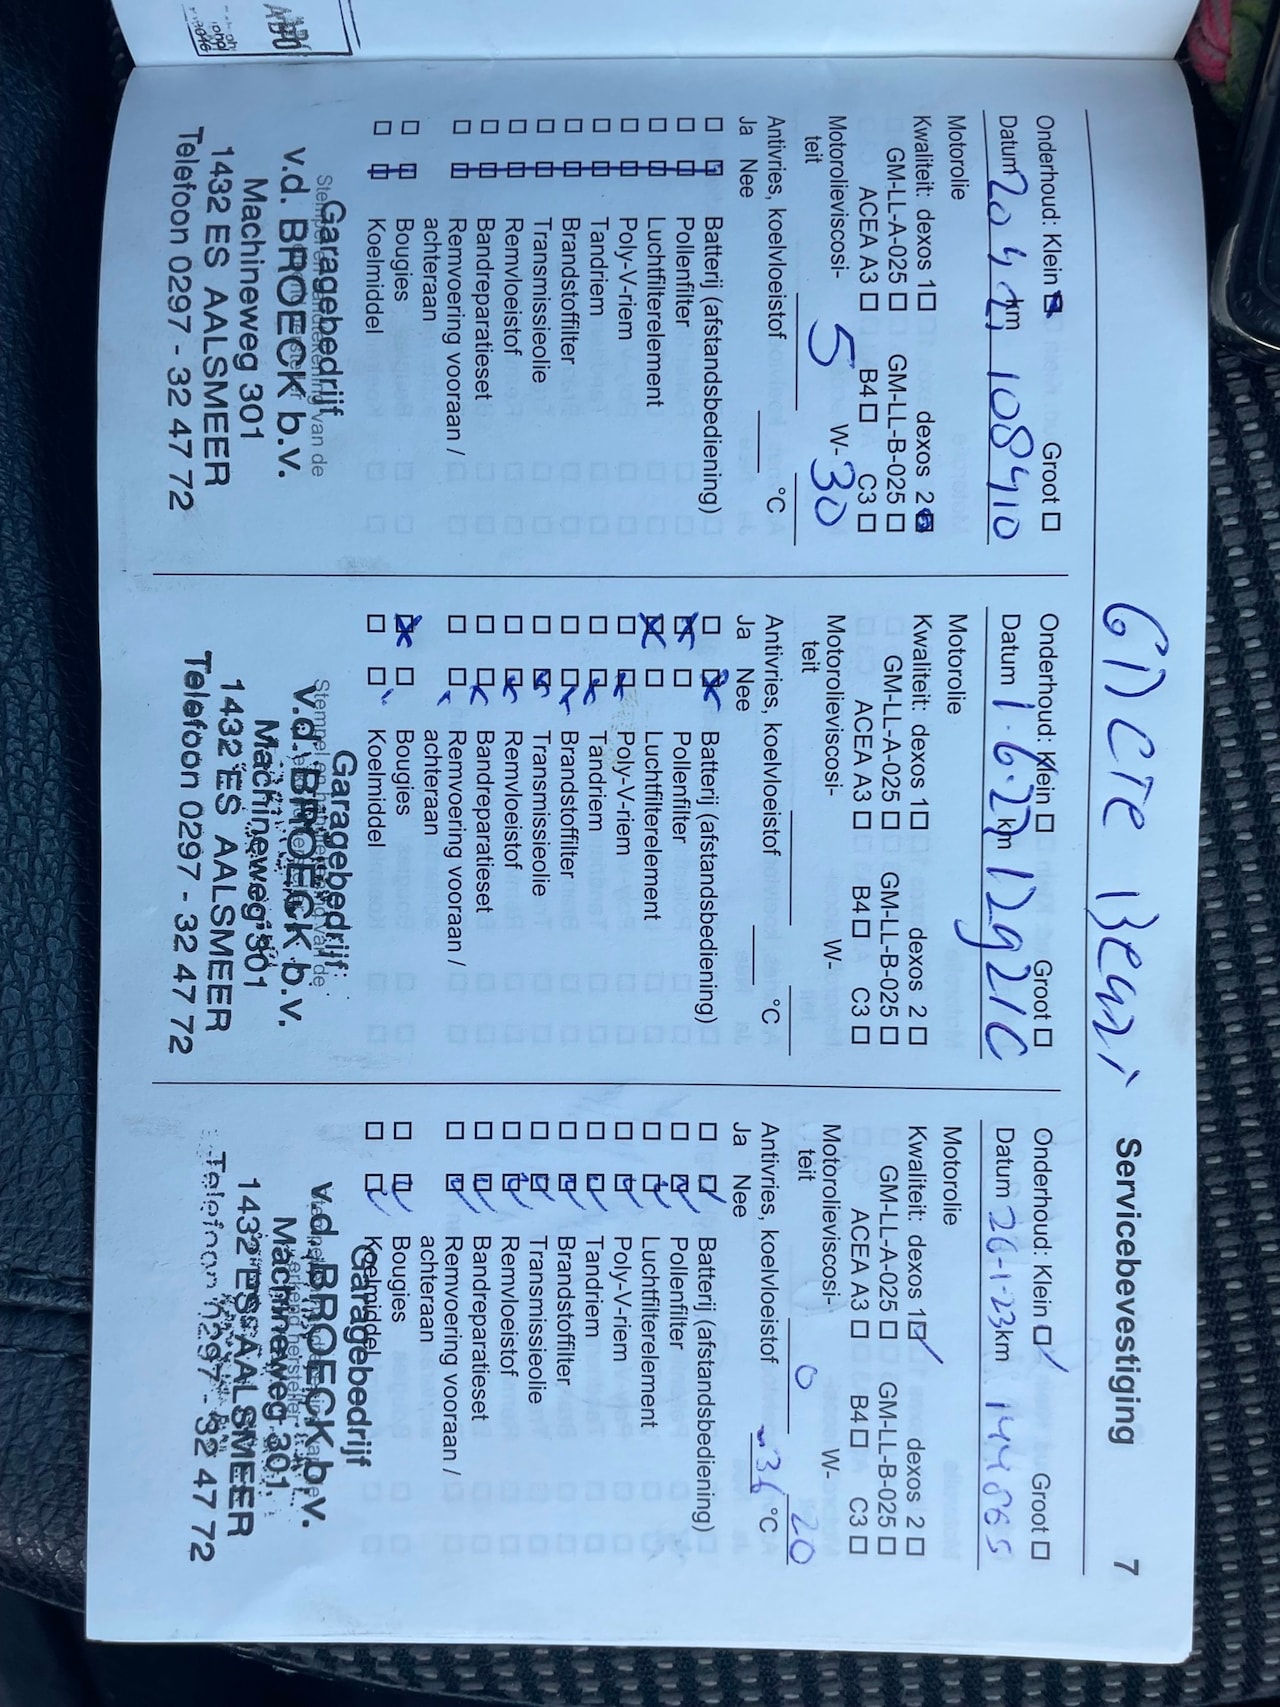 Servicebevestiging 7
Onderhoud: Klein ☒ Groot ☐
Datum 20 4 21 km 108410
Motorolie
Kwaliteit: dexos 1 ☐ dexos 2 ☒
GM-LL-A-025 ☐ GM-LL-B-025 ☐
ACEA A3 ☐ B4 ☐ C3 ☐
Motorolieviscosi- 5 W- 30
teit
Antivries, koelvloeistof °C
Ja Nee
☐ ☒ Batterij (afstandsbediening)
☐ ☒ Pollenfilter
☐ ☒ Luchtfilterelement
☐ ☒ Poly-V-riem
☐ ☒ Tandriem
☐ ☒ Brandstoffilter
☐ ☒ Transmissieolie
☐ ☒ Remvloeistof
☐ ☒ Bandreparatieset
☐ ☒ Remvoering vooraan /
achteraan
☐ ☒ Bougies
☐ ☒ Koelmiddel
Garagebedrijf
v.d. BROECK b.v.
Machineweg 301
1432 ES AALSMEER
Telefoon 0297 - 32 47 72
Onderhoud: Klein ☐ Groot ☐
Datum 1.6.22 km
Motorolie
Kwaliteit: dexos 1 ☐ dexos 2 ☐
GM-LL-A-025 ☐ GM-LL-B-025 ☐
ACEA A3 ☐ B4 ☐ C3 ☐
Motorolieviscosi- W-
teit
Antivries, koelvloeistof °C
Ja Nee
☐ ☒ Batterij (afstandsbediening)
☒ ☐ Pollenfilter
☒ ☐ Luchtfilterelement
☐ ☒ Poly-V-riem
☐ ☒ Tandriem
☐ ☒ Brandstoffilter
☐ ☒ Transmissieolie
☐ ☒ Remvloeistof
☐ ☒ Bandreparatieset
☐ ☒ Remvoering vooraan /
achteraan
☒ ☐ Bougies
☐ ☒ Koelmiddel
Garagebedrijf
v.d. BROECK b.v.
Machineweg 301
1432 ES AALSMEER
Telefoon 0297 - 32 47 72
Onderhoud: Klein ☑ Groot ☐
Datum 26-1-23 km
Motorolie
Kwaliteit: dexos 1 ☑ dexos 2 ☐
GM-LL-A-025 ☐ GM-LL-B-025 ☐
ACEA A3 ☐ B4 ☐ C3 ☐
Motorolieviscosi- 0 W- 20
teit
Antivries, koelvloeistof -36 °C
Ja Nee
☐ ☑ Batterij (afstandsbediening)
☐ ☑ Pollenfilter
☐ ☑ Luchtfilterelement
☐ ☑ Poly-V-riem
☐ ☑ Tandriem
☐ ☑ Brandstoffilter
☐ ☑ Transmissieolie
☐ ☑ Remvloeistof
☐ ☑ Bandreparatieset
☐ ☑ Remvoering vooraan /
achteraan
☐ ☑ Bougies
☐ ☑ Koelmiddel
Garagebedrijf
v.d. BROECK b.v.
Machineweg 301
1432 ES AALSMEER
Telefoon 0297 - 32 47 72